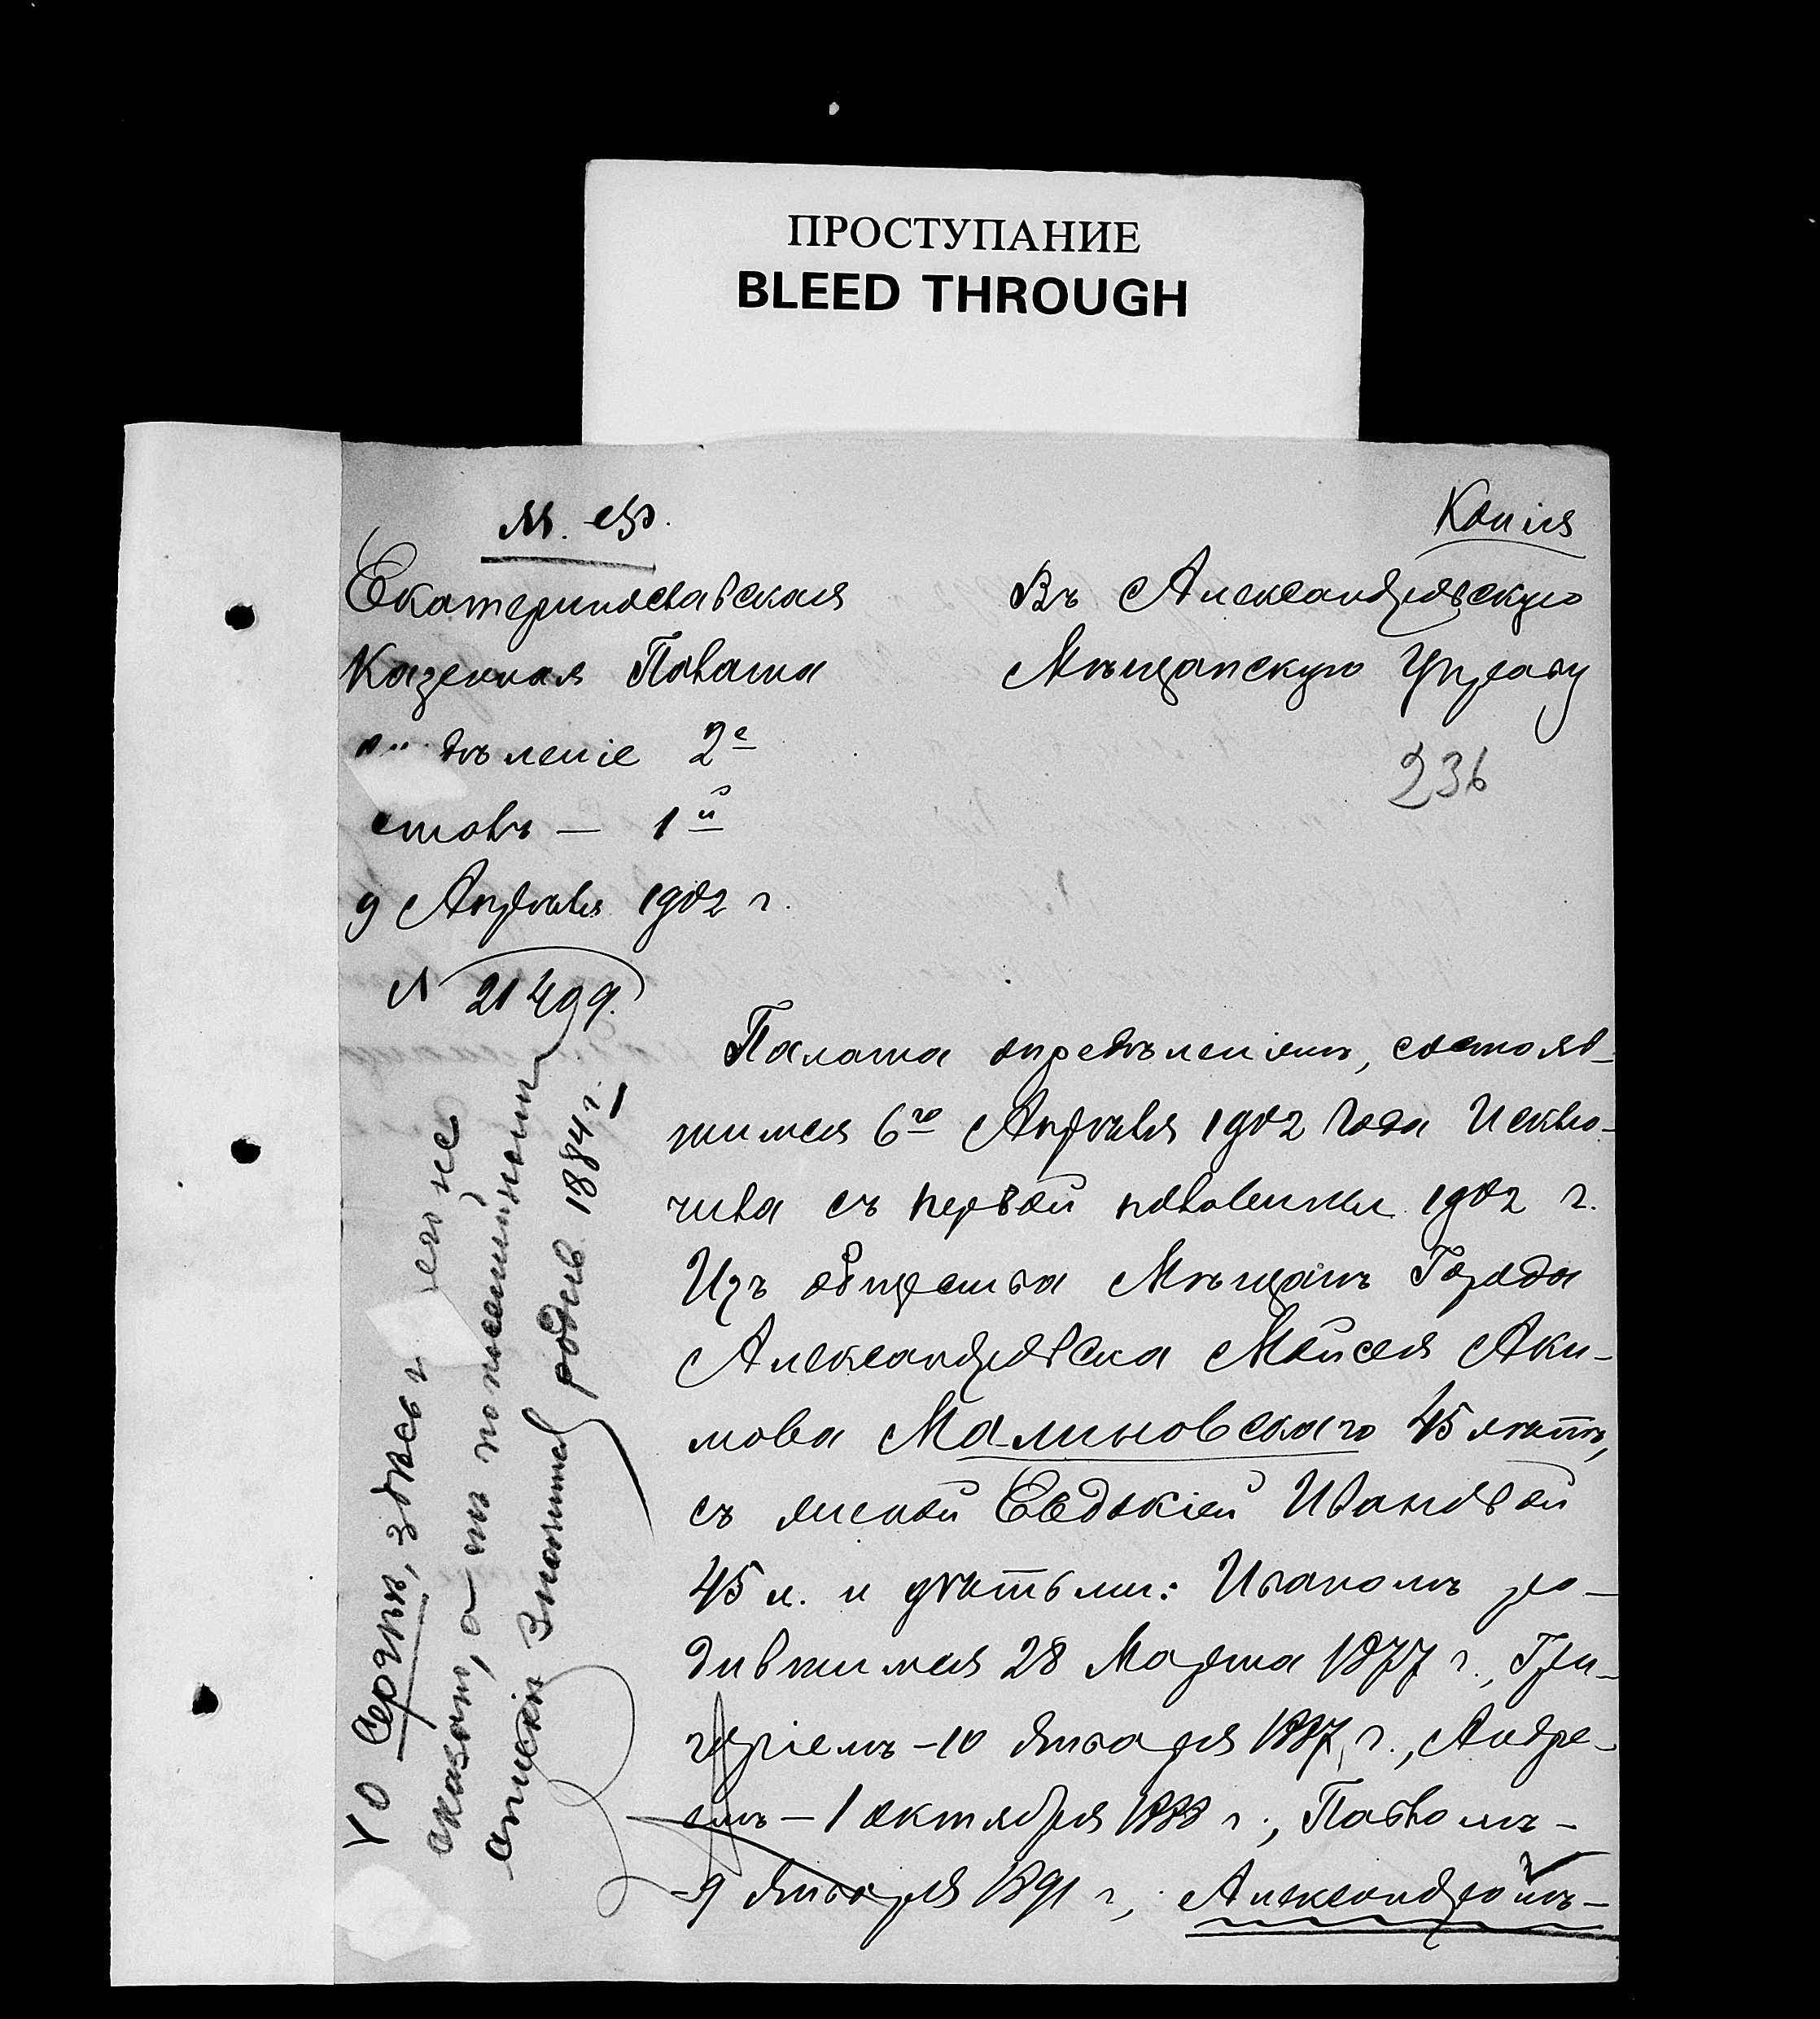 ПРОСТУПАНИЕ
BLEED THROUGH
М. Ф.
Копія
Екатеринославская
Казенная Палата
дѣленіе 2е
столъ — 1й
9 Апрѣля 1902 г.
N 21499.
Въ Александровскую
Мѣщанскую Управу
236
Палата опредѣленіемъ, состояв-
шимся 6го Апрѣля 1902 года Исклю-
чила съ первой половины 1902 г.
Изъ общества Мѣщанъ Города
Александровска Мойсея Аки-
мова Малиновскаго 45 лѣтъ,
съ женой Евдокіей Ивановой
45 л. и дѣтьми: Иваномъ ро-
дившимся 28 Марта 1877 г., Гри-
горіемъ - 10 Января 1887 г., Андре-
емъ - 1 октября 1888 г., Павломъ -
- 9 Января 1891 г., Александромъ -
О Сергѣи, здѣсь его не
сказано, а по посемейному
списку значится родив. 1884 г.